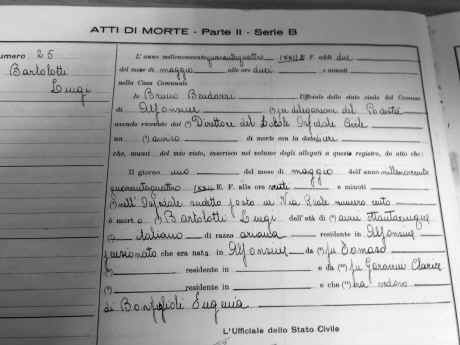 ATTI DI MORTE - Parte II - Serie B
Numero 25
Bartolotti
Luigi
L'anno millenovecento quarantaquattro XXII E. F. addì due
del mese di maggio alle ore dieci e minuti
nella Casa Comunale
Io Bruno Ufficiale dello stato civile del Comune
di Alfonsine per delegazione del Podestà
avendo ricevuto dal Direttore del locale Ospedale Civile
un avviso di morte con la data
che, munito del mio visto, inserisco nel volume degli allegati a questo registro, do atto che:
Il giorno uno del mese di maggio dell'anno millenovecento
quarantaquattro XXII E. F. alle ore venti e minuti
nell'Ospedale suddetto posto in Via Reale numero cento
è morto Bartolotti Luigi dell'età di anni
italiano di razza ariana residente in Alfonsine
pensionato che era nato in Alfonsine da fu Tomaso
residente in e da fu Clarice
residente in e che era vedovo
di Eugenia
L'Ufficiale dello Stato Civile